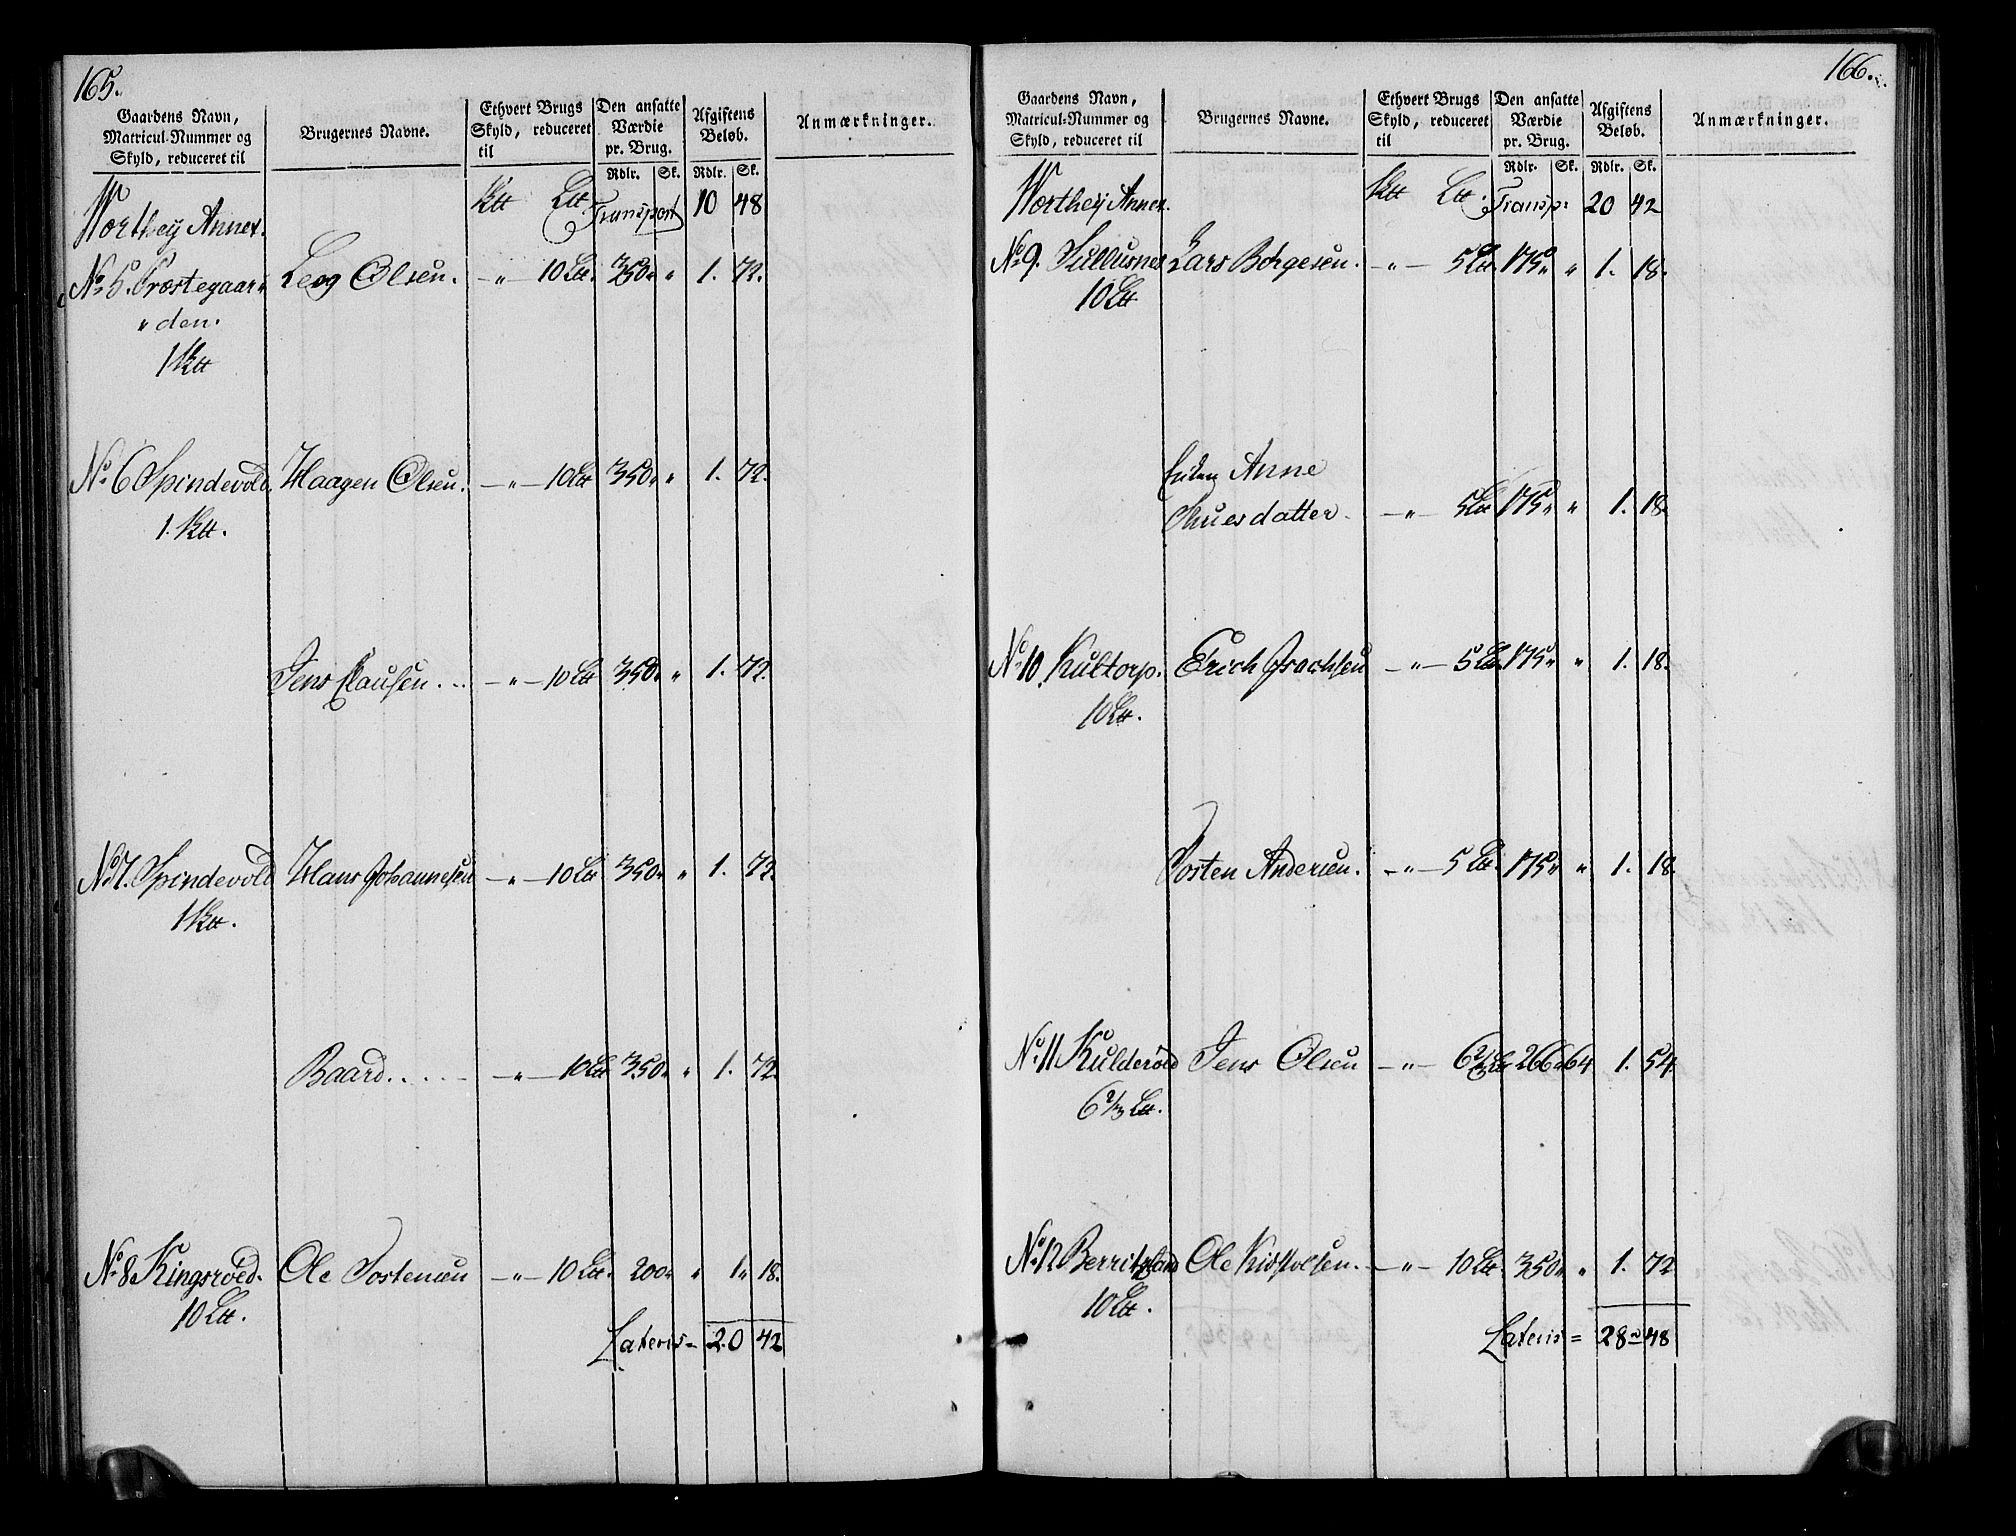 165.
Gaardens Navn, Matricul-Nummer og Skyld, reduceret til
Brugernes Navne.
Ethvert Brugs Skyld, reduceret til
Den ansatte Værdie pr. Brug.
Afgiftens Beløb.
Anmærkninger.
Rdlr. Sk. Rdlr. Sk.
Worthey Annex. Transport 10 48
No 5. Præstegaar„ Leog Olsen. — „ — 10 Ltt. 350 „ „ 1. 72.
„ den.
1 Ktt
No 6 Spindevold. Haagen Olsen. — „ — 10 Ltt 350 „ „ 1. 72.
1. Ktt.
Jens Clausen. .. — „ — 10 Ltt 350 „ „ 1. 72.
No 7. Spindevold Hans Johannesen — „ — 10 Ltt 350 „ „ 1. 72.
1 Ktt.
Baard. . . . . — „ — 10 Ltt 350 „ „ 1. 72.
No 8 Kingsroed. Ole Tostensen — „ — 10 Ltt. 200 „ „ 1 „ 18.
10 Ltt.
Lateris = 20 42
166.
Gaardens Navn, Matricul-Nummer og Skyld, reduceret til
Brugernes Navne.
Ethvert Brugs Skyld, reduceret til
Den ansatte Værdie pr. Brug.
Afgiftens Beløb.
Anmærkninger.
Rdlr. Sk. Rdlr. Sk.
Worthey Annex. Ktt Ltt. Transp: 20 42
No 9. Lars Borgesen. — „ — 5 Ltt. 175 „ „ 1. 18.
10 Ltt
Enken Anne
Thuesdatter. — „ — 5 Ltt 175 „ „ 1. 18.
No 10. Kultorp. Erich Isachsen — „ — 5 Ltt. 175 „ „ 1. 18.
10 Ltt.
Tosten Andersen. — „ — 5 Ltt. 175 „ „ 1. 18.
No 11 Kulderød Jens Olsen — „ — 6 2/3 Ltt 266 „ 64 1. 54.
6 2/3 Ltt.
No 12 Berritzland Ole Kistolsen. — „ — 10 Ltt. 350 „ „ 1. 72
10 Ltt.
Lateris = 28 „ 48